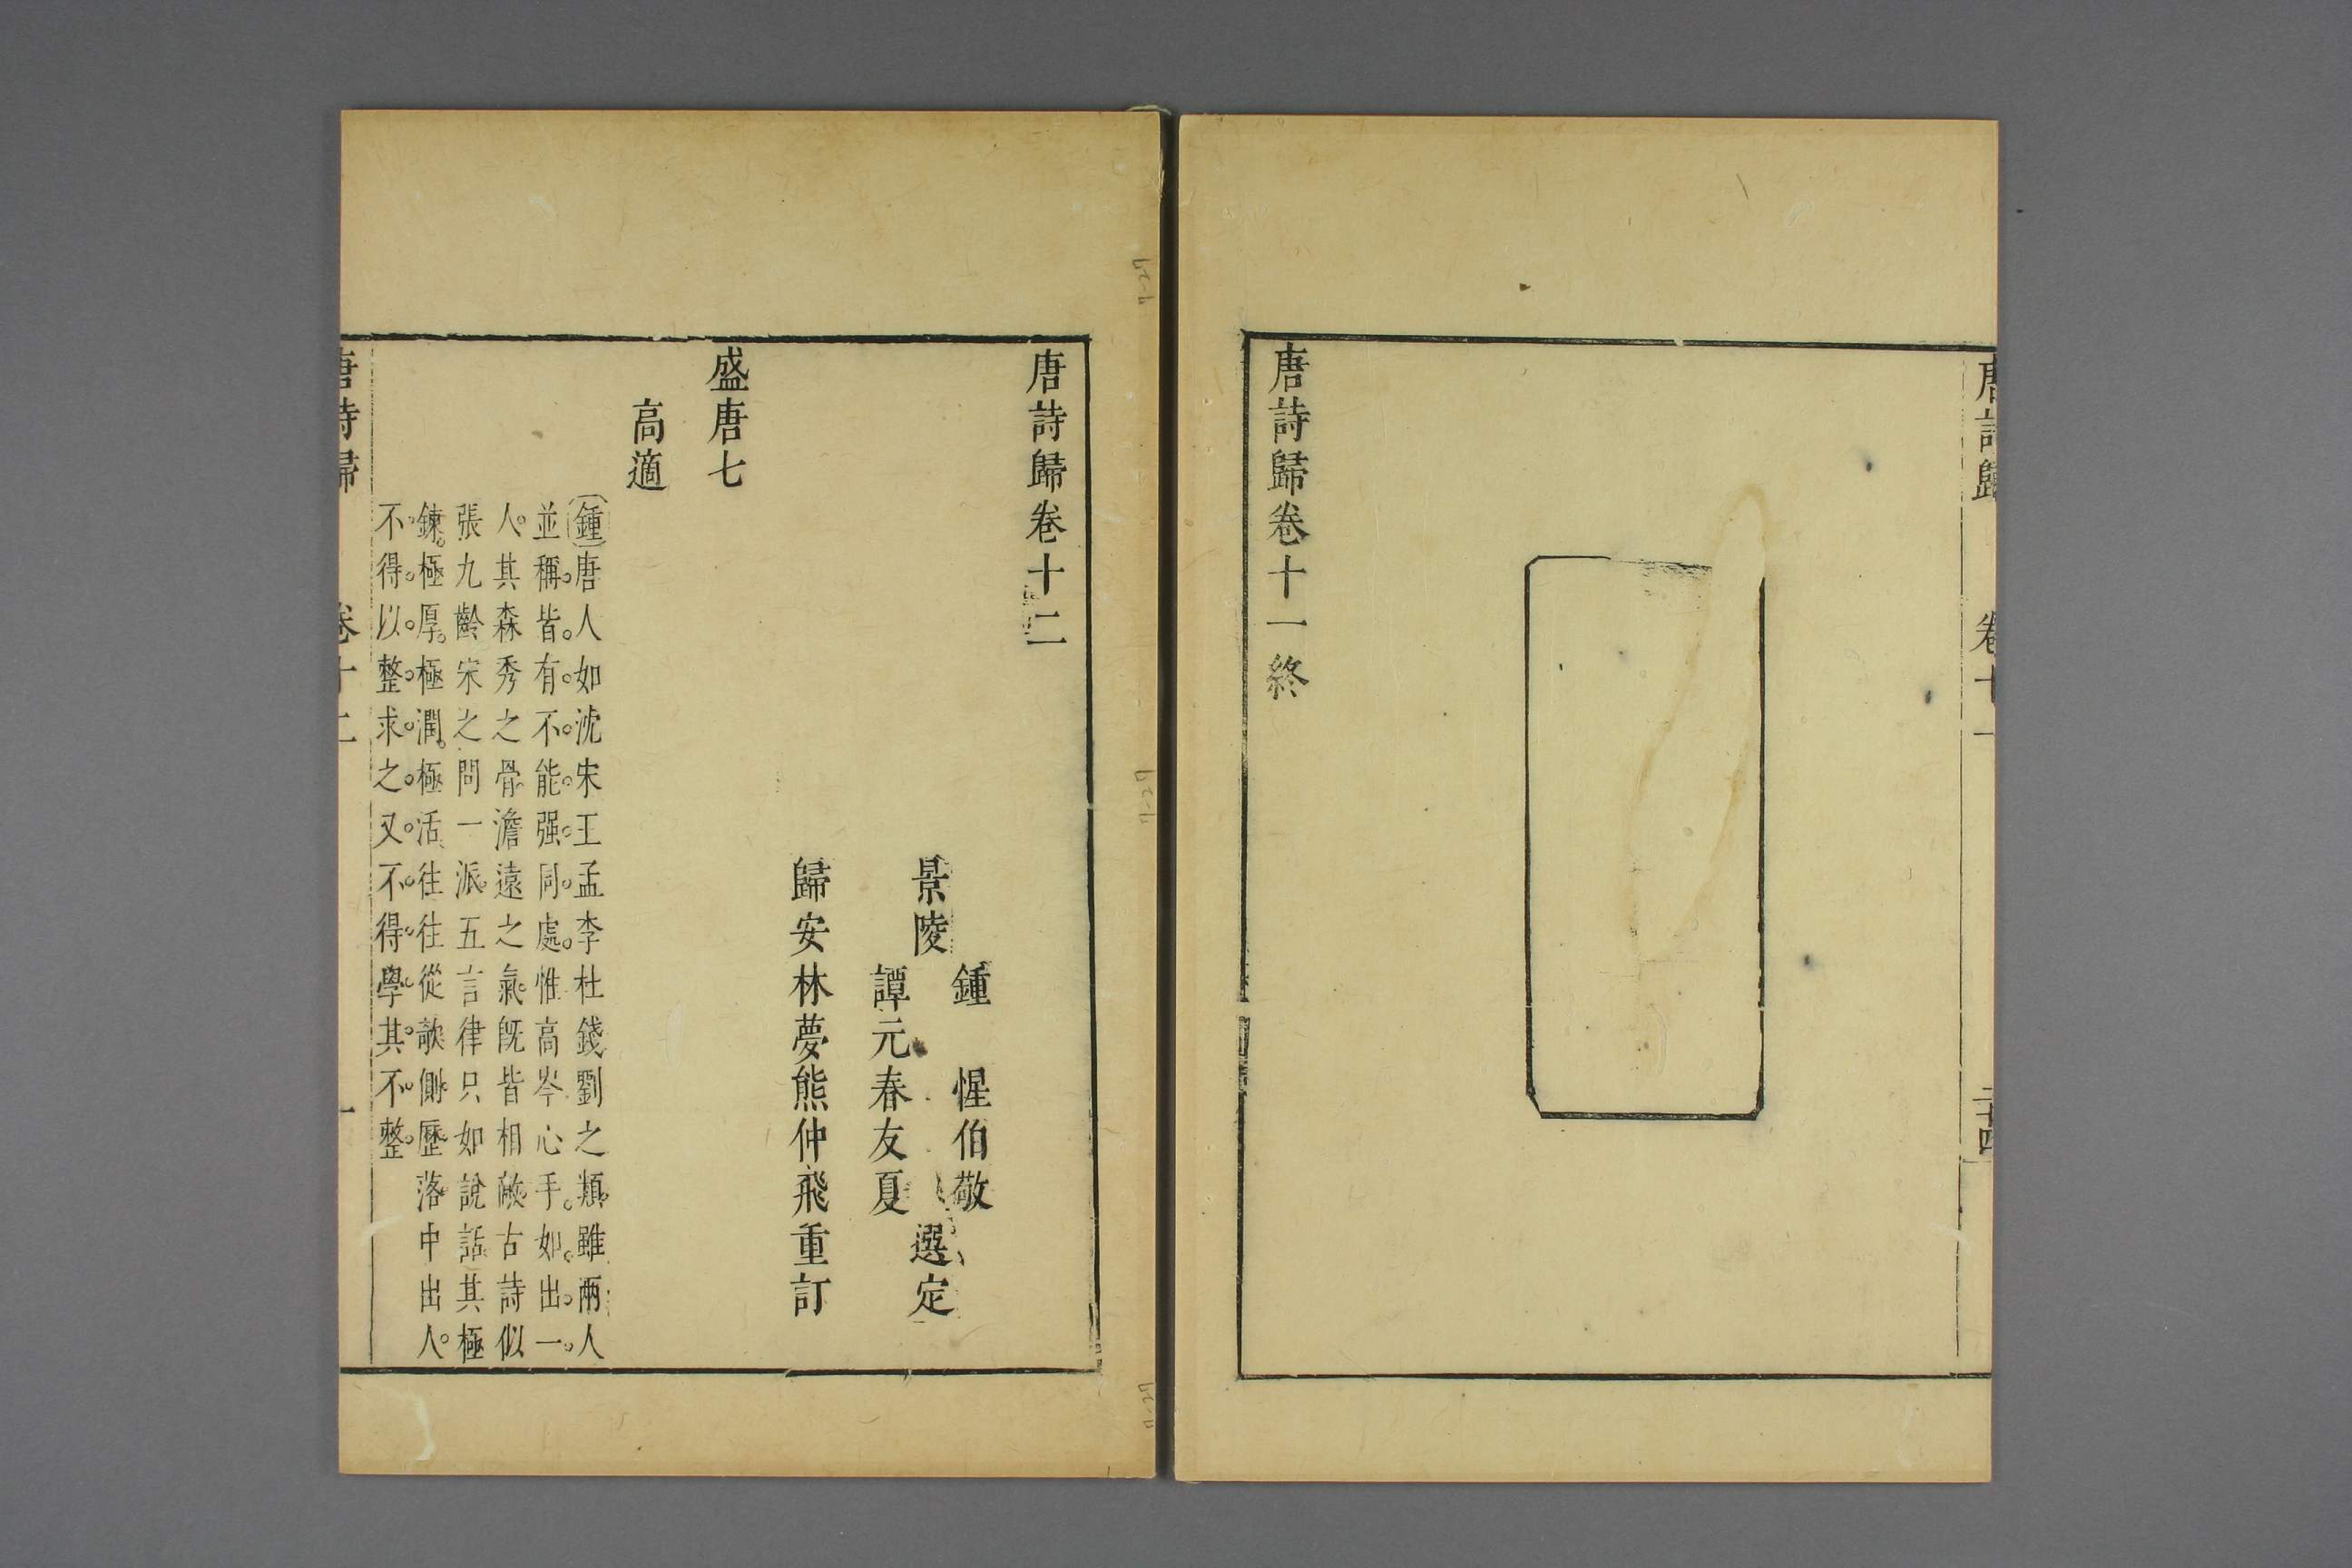 唐詩歸
卷十一
二十四
唐詩歸卷十一終
唐詩歸卷十二
景陵
鍾　惺伯敬
譚元春友夏
選定
歸安林夢熊仲飛重訂
盛唐七
高適
鍾唐人如沈宋王孟李杜錢劉之類雖兩人
並稱皆有不能强同處惟高岑心手如出一
人其森秀之骨澹遠之氣旣皆相敵古詩似
張九齡宋之問一派五言律只如說話其極
鍊極厚極潤極活往往從欹側歷落中出人
不得以整求之又不得學其不整
唐詩歸
卷十二
一